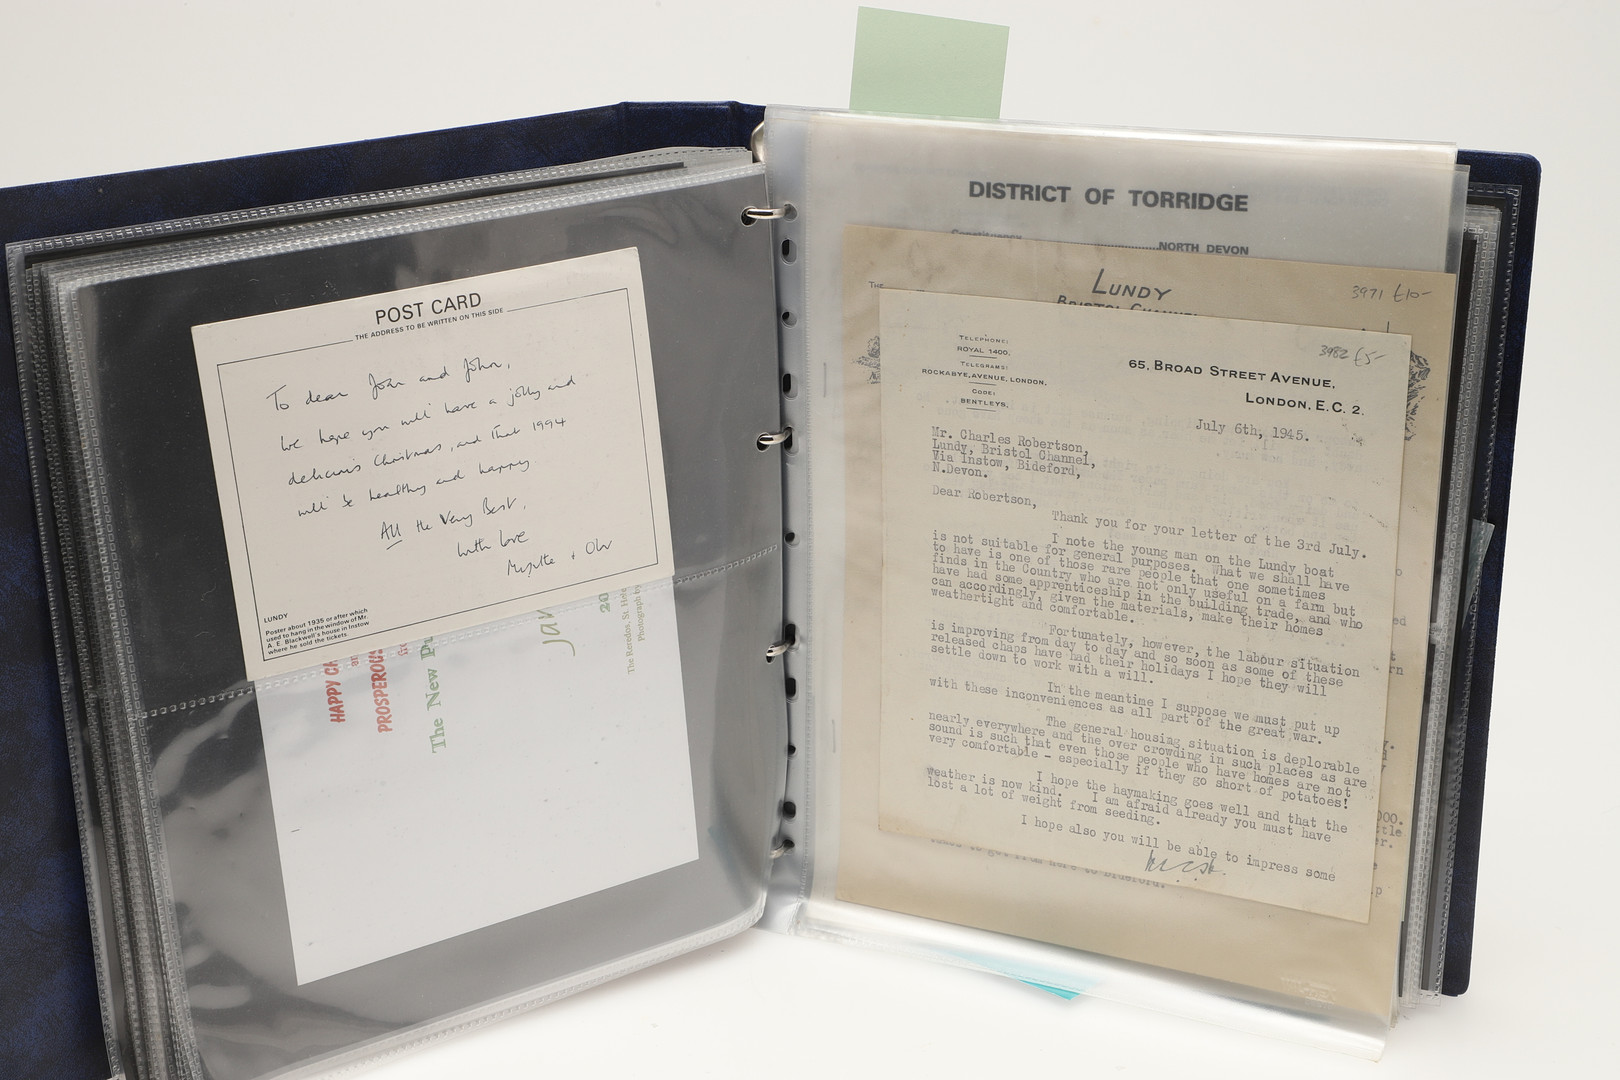 POST CARD
THE ADDRESS TO BE WRITTEN ON THIS SIDE
To dear Joan and John,
We hope you will have a jolly and
delicious Christmas, and that 1994
will be healthy and happy.
All the Very Best,
with love
Myrtle +
LUNDY
Poster about 1935 or after which
used to hang in the window of Mr.
A. E. Blackwell's house in Instow
where he sold the tickets.
HAPPY
PROSPEROUS
The New
20
The Reredos, St.
Photograph by
DISTRICT OF TORRIDGE
Constituency
NORTH DEVON
THE
LUNDY
BRISTOL CHANNEL
3971 £10-
TELEPHONE:
ROYAL 1400.
TELEGRAMS:
ROCKABYE, AVENUE, LONDON.
CODE:
BENTLEYS.
3982 £5-
65, BROAD STREET AVENUE,
LONDON, E.C. 2.
July 6th, 1945.
Mr. Charles Robertson,
Lundy, Bristol Channel,
Via Instow, Bideford,
N.Devon.
Dear Robertson,
Thank you for your letter of the 3rd July.
I note the young man on the Lundy boat
is not suitable for general purposes. What we shall have
to have is one of those rare people that one sometimes
finds in the Country who are not only useful on a farm but
have had some apprenticeship in the building trade, and who
can accordingly, given the materials, make their homes
weathertight and comfortable.
Fortunately, however, the labour situation
is improving from day to day and so soon as some of these
released chaps have had their holidays I hope they will
settle down to work with a will.
In the meantime I suppose we must put up
with these inconveniences as all part of the great war.
The general housing situation is deplorable
nearly everywhere and the over crowding in such places as are
sound is such that even those people who have homes are not
very comfortable - especially if they go short of potatoes!
I hope the haymaking goes well and that the
weather is now kind. I am afraid already you must have
lost a lot of weight from seeding.
I hope also you will be able to impress some
to Bideford.